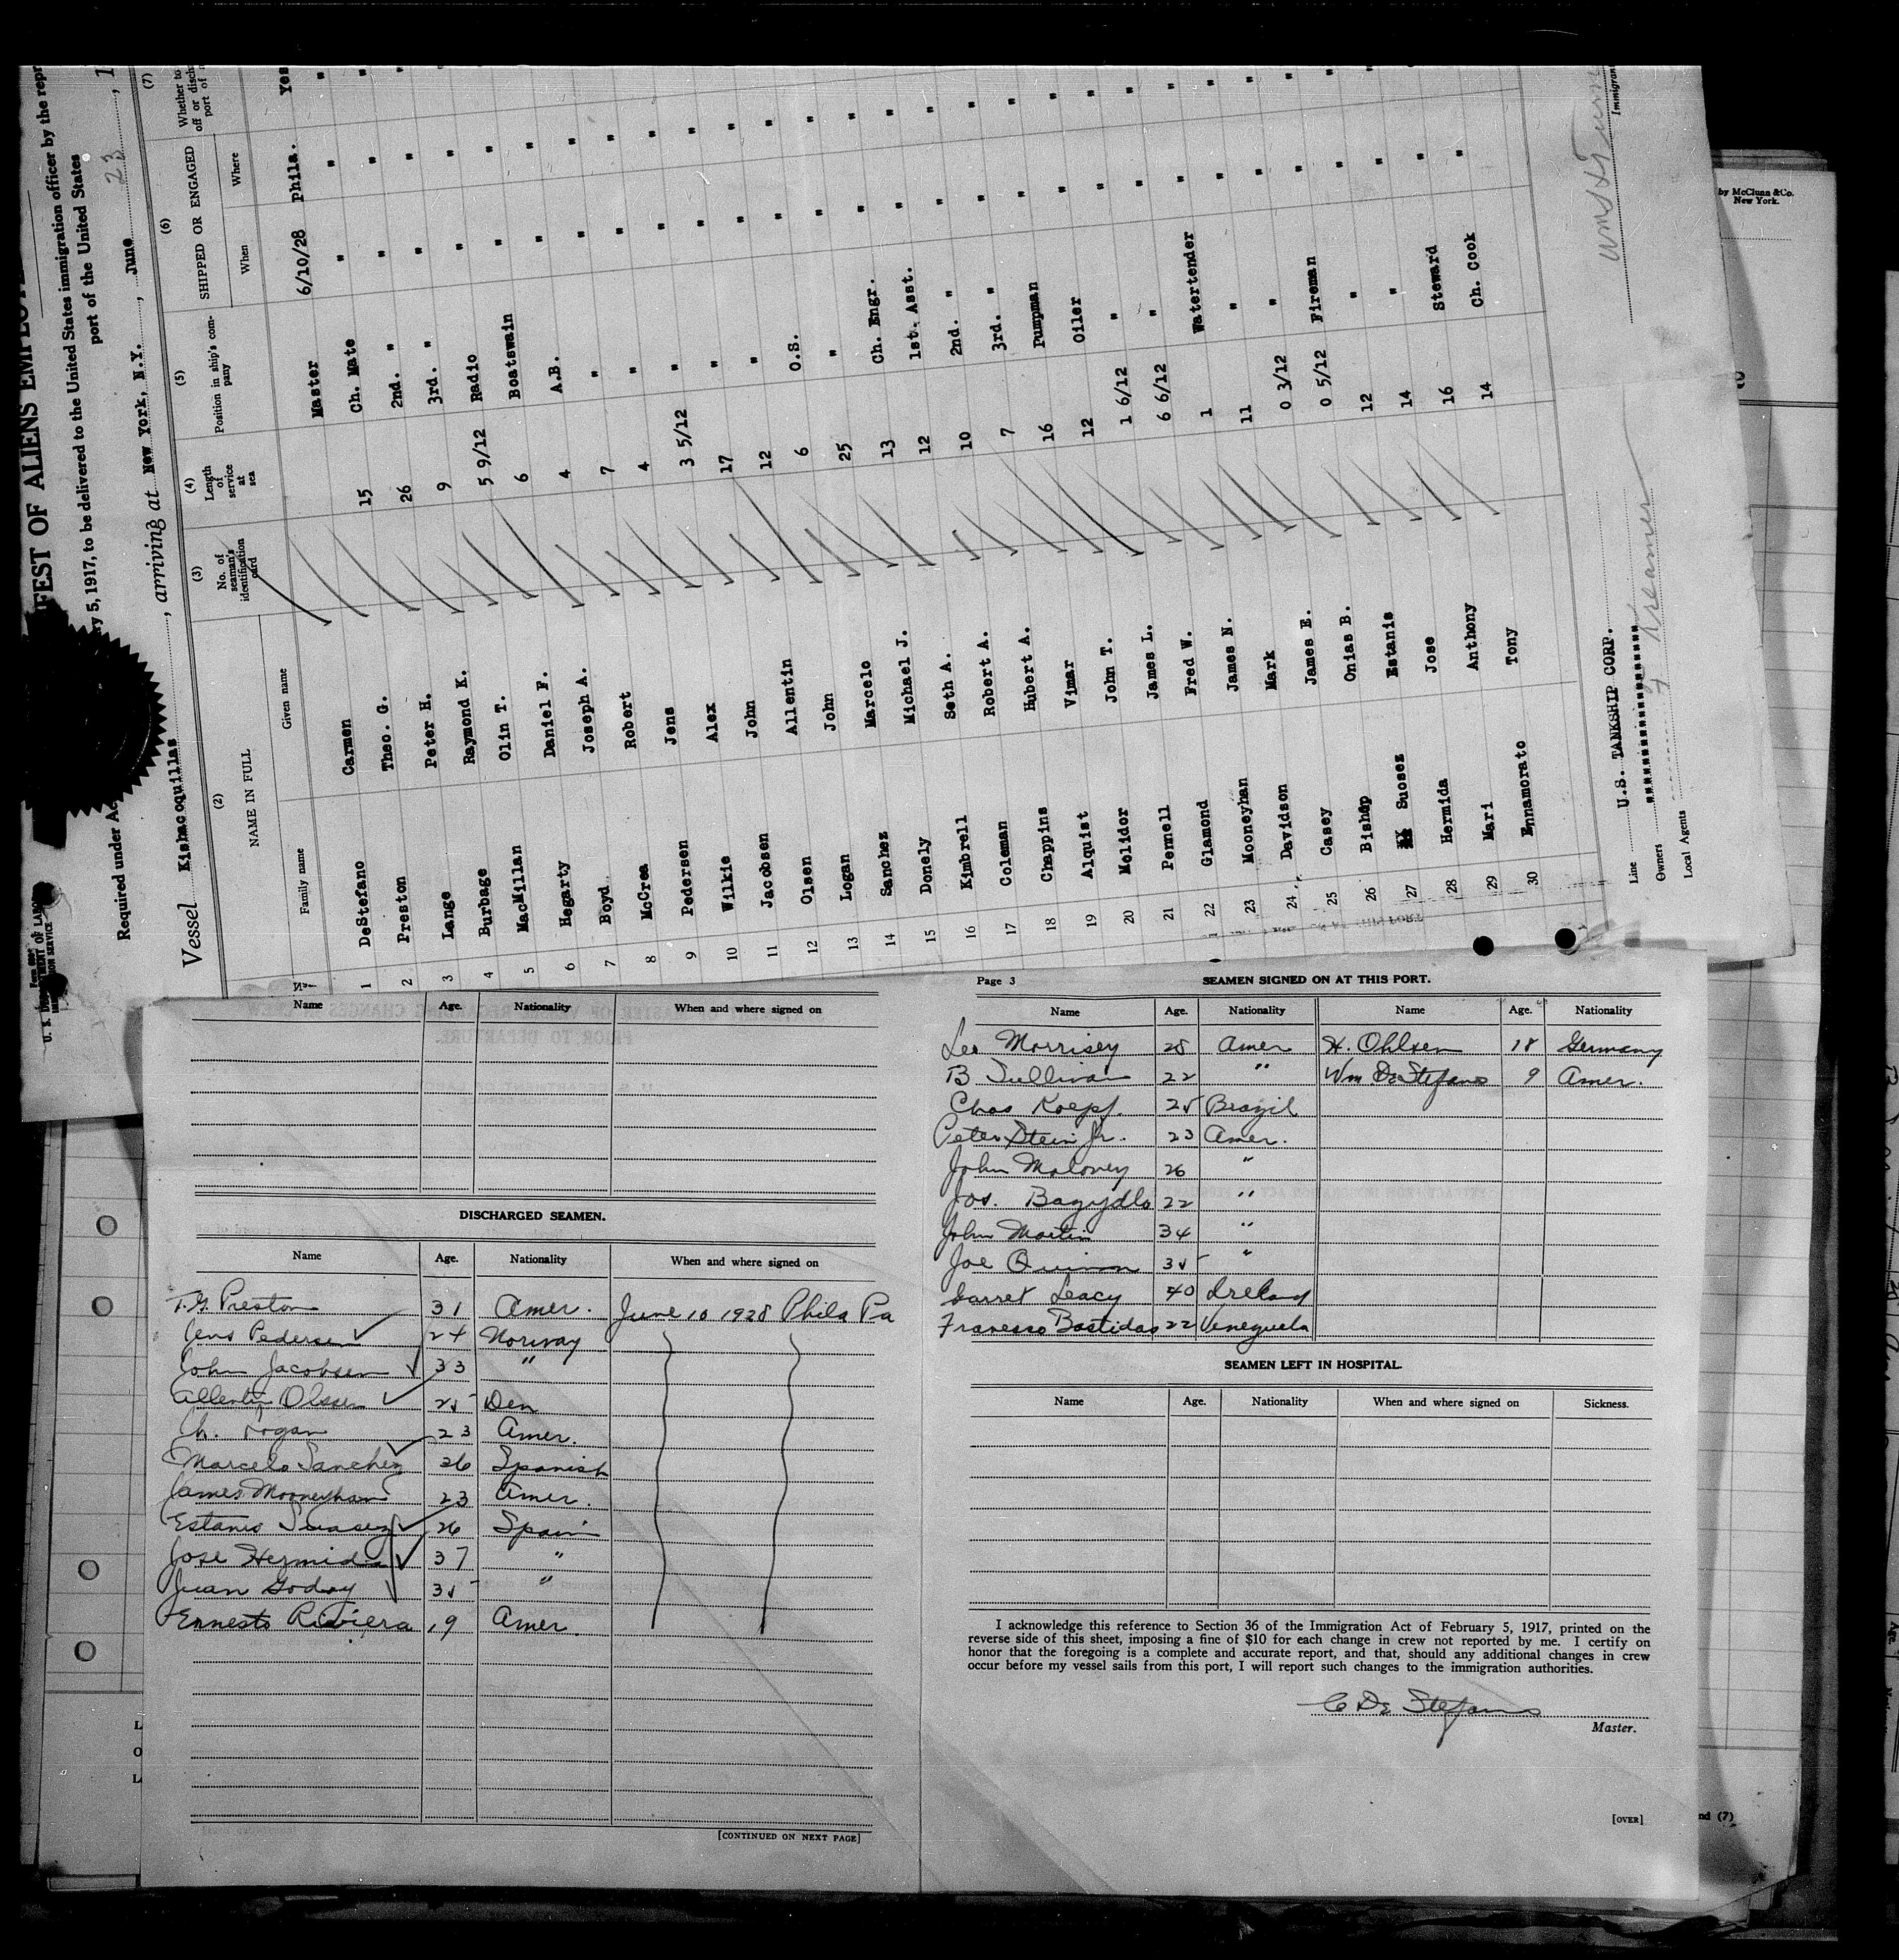 FEST OF ALIENS EMPLOYE
ry 5, 1917, to be delivered to the United States immigration officer by the repr
port of the United States
Form 689
U. S. DEPARTMENT OF LABOR
IMMIGRATION SERVICE
Required under Ac
Vessel Kishacoquillas, arriving at New York, N.Y., June 23, 1
No. (2) NAME IN FULL (3) No. of seaman's identification card (4) Length of service at sea (5) Position in ship's company (6) SHIPPED OR ENGAGED (7) Whether to
off or disch
port of
Family name Given name When Where
1 DeStefano Carmen Master 6/10/28 Phila. Yes
2 Preston Theo. G. 15 Ch. Mate " " "
3 Lange Peter H. 26 2nd. " " " "
4 Burbage Raymond K. 9 3rd. " " " "
5 MacMillan Olin T. 5 9/12 Radio " " "
6 Hegarty Daniel F. 6 Boatswain " " "
7 Boyd Joseph A. 4 A.B. " " "
8 McCrea Robert 7 " " " "
9 Pedersen Jens 4 " " " "
10 Wilkie Alex 3 5/12 " " " "
11 Jacobsen John 17 " " " "
12 Olsen Allentin 12 " " " "
13 Logan John 6 O.S. " " "
14 Sanchez Marcelo 25 " " " "
15 Donely Michael J. 13 Ch. Engr. " " "
16 Kimbrell Seth A. 12 1st. Asst. " " "
17 Coleman Robert A. 10 2nd. " " " "
18 Chappins Hubert A. 7 3rd. " " " "
19 Alquist Vimar 16 Pumpman " " "
20 Melidor John T. 12 Oiler " " "
21 Pennell James L. 1 6/12 " " " "
22 Glamond Fred W. 6 6/12 " " " "
23 Mooneyhan James N. 1 Watertender " " "
24 Davidson Mark 11 " " " "
25 Casey James E. 0 3/12 " " " "
26 Bishop Onias B. 0 5/12 Fireman " " "
27 Suosez Estanis 12 " " " "
28 Hermida Jose 14 " " " "
29 Mari Anthony 16 Steward " " "
30 Ennamorato Tony 14 Ch. Cook " " "
Line U.S. TANKSHIP CORP.
Owners
Local Agents
Immigran
by McClunn & Co.
New York.
Name Age. Nationality When and where signed on
DISCHARGED SEAMEN.
Name Age. Nationality When and where signed on
T.G. Preston 31 Amer. June 10 1928 Phila Pa
Jens Pedersen 24 Norway
John Jacobsen 33 "
Allentin Olsen 25 Den
Jh. Logan 23 Amer.
Marcelo Sanchez 26 Spanish
James Mooneyhan 23 Amer.
Estanis Suasez 26 Spain
Jose Hermida 37 "
Juan Godoy 35 "
Ernesto Riviera 19 Amer.
[CONTINUED ON NEXT PAGE]
Page 3 SEAMEN SIGNED ON AT THIS PORT.
Name Age. Nationality Name Age. Nationality
Leo Morrisey 28 Amer H. Ohlsen 18 Germany
B Sullivan 22 " Wm DeStefano 9 Amer.
Chas Koepf 25 Brazil
Peter Stein Jr. 23 Amer.
John Moloney 26 "
Jos. Bagydlo 22 "
John Martin 34 "
Joe Quinn 35 "
Garret Leacy 40 Ireland
Fravesso Bastidas 22 Venezuela
SEAMEN LEFT IN HOSPITAL.
Name Age. Nationality When and where signed on Sickness.
I acknowledge this reference to Section 36 of the Immigration Act of February 5, 1917, printed on the
reverse side of this sheet, imposing a fine of $10 for each change in crew not reported by me. I certify on
honor that the foregoing is a complete and accurate report, and that, should any additional changes in crew
occur before my vessel sails from this port, I will report such changes to the immigration authorities.
C De Stefano
Master.
[OVER]
nd (7)